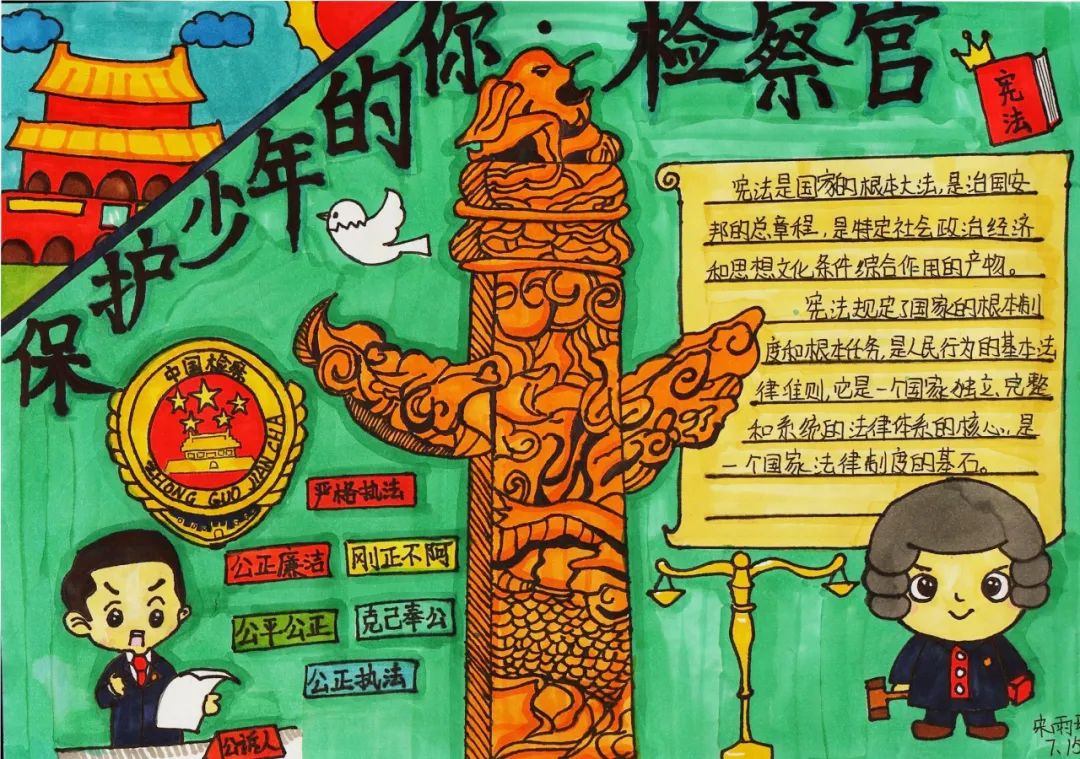 保护少年的你·检察官
宪法
宪法是国家的根本大法,是治国安
邦的总章程,是特定社会政治经济
和思想文化条件综合作用的产物。
宪法规定了国家的根本制
度和根本任务,是人民行为的基本法
律准则,它是一个国家独立、完整
和系统的法律体系的核心,是
一个国家法律制度的基石。
中国检察
ZHONG GUO JIAN CHA
严格执法
公正廉洁
刚正不阿
公平公正
克己奉公
公正执法
公诉人
宋雨
7.15